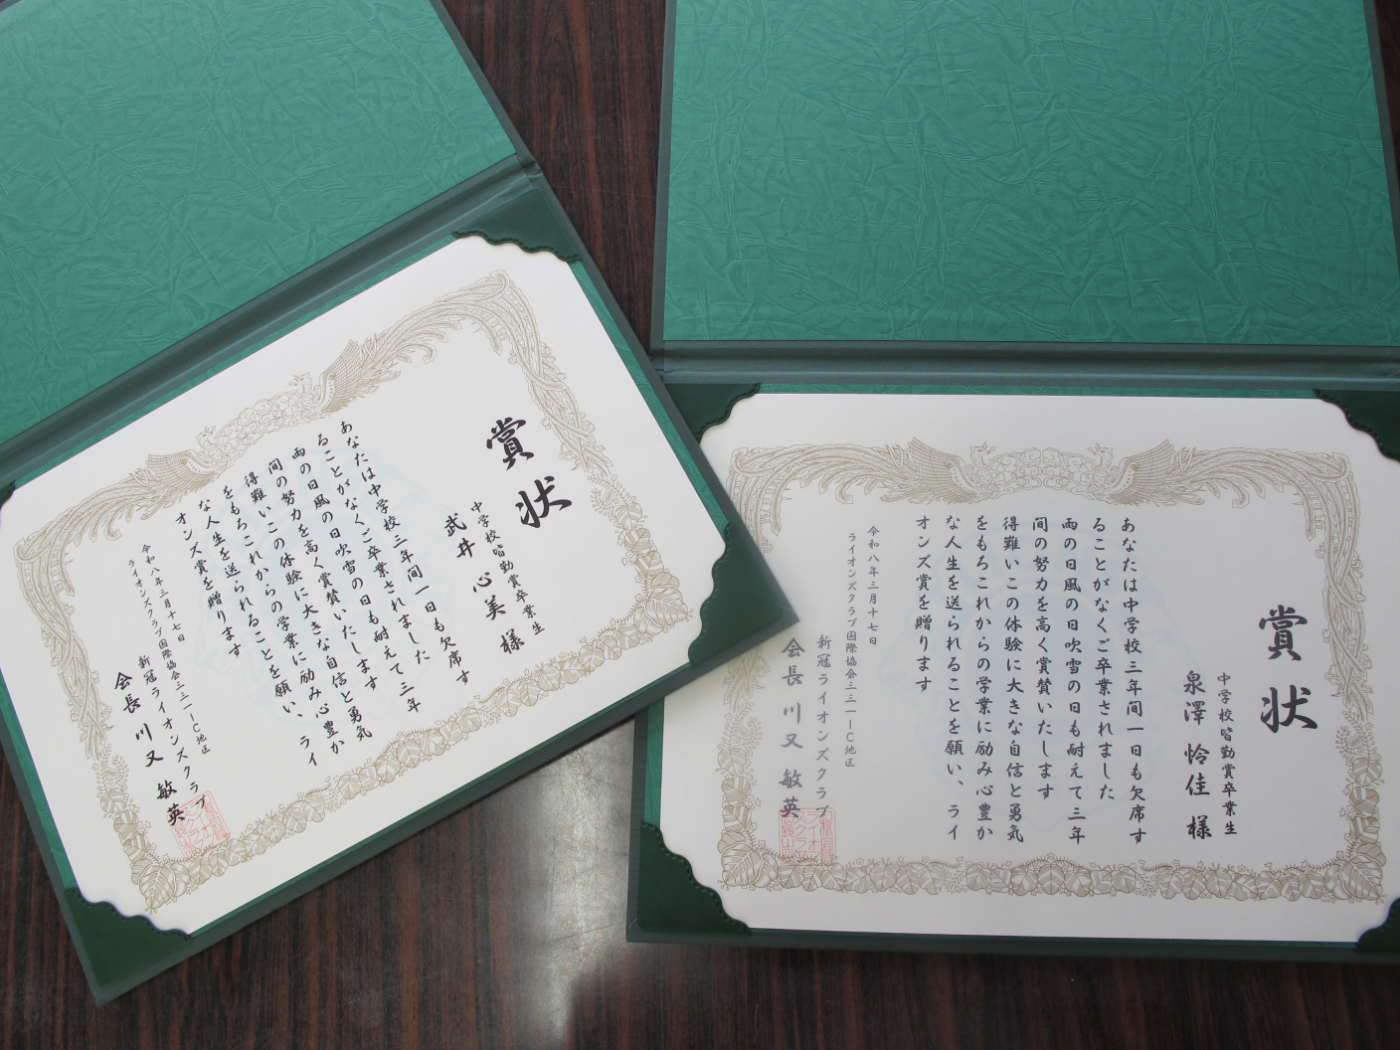 賞状
中学校皆勤賞卒業生
武井 心美 様
あなたは中学校三年間一日も欠席す
ることがなくご卒業されました
雨の日風の日吹雪の日も耐えて三年
間の努力を高く賞賛いたします
得難いこの体験に大きな自信と勇気
をもちこれからの学業に励み心豊か
な人生を送られることを願い、ライ
オンズ賞を贈ります
令和八年三月十七日
ライオンズクラブ国際協会三三一ーC地区
新冠ライオンズクラブ
会長 川又 敏英
賞状
中学校皆勤賞卒業生
泉澤 怜佳 様
あなたは中学校三年間一日も欠席す
ることがなくご卒業されました
雨の日風の日吹雪の日も耐えて三年
間の努力を高く賞賛いたします
得難いこの体験に大きな自信と勇気
をもちこれからの学業に励み心豊か
な人生を送られることを願い、ライ
オンズ賞を贈ります
令和八年三月十七日
ライオンズクラブ国際協会三三一ーC地区
新冠ライオンズクラブ
会長 川又 敏英